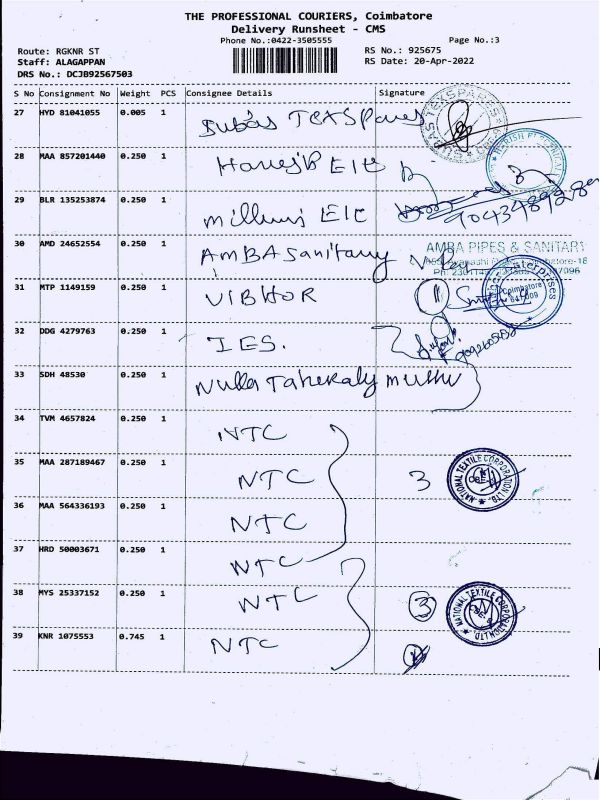 THE PROFESSIONAL COURIERS, Coimbatore
Delivery Runsheet - CMS
Phone No.:0422-3505555
Page No.:3
Route: RGKNR ST
RS No.: 925675
Staff: ALAGAPPAN
RS Date: 20-Apr-2022
DRS No.: DCJB92567503
S No Consignment No Weight PCS Consignee Details Signature
27 HYD 81041055 0.005 1 Subas TEXSpares
28 MAA 857201440 0.250 1
29 BLR 135253874 0.250 1
30 AMD 24652554 0.250 1 AMBA Sanitary
AMBA PIPES & SANITARY
31 MTP 1149159 0.250 1 VIBHOR
32 DDG 4279763 0.250 1 IES.
33 SDH 48530 0.250 1
34 TVM 4657824 0.250 1 NTC
35 MAA 287189467 0.250 1 NTC 3
NATIONAL TEXTILE CORPORATION LTD.
36 MAA 564336193 0.250 1 NTC
37 HRD 50003671 0.250 1 NTC
38 MYS 25337152 0.250 1 NTC 3
NATIONAL TEXTILE CORPORATION LTD.
39 KNR 1075553 0.745 1 NTC